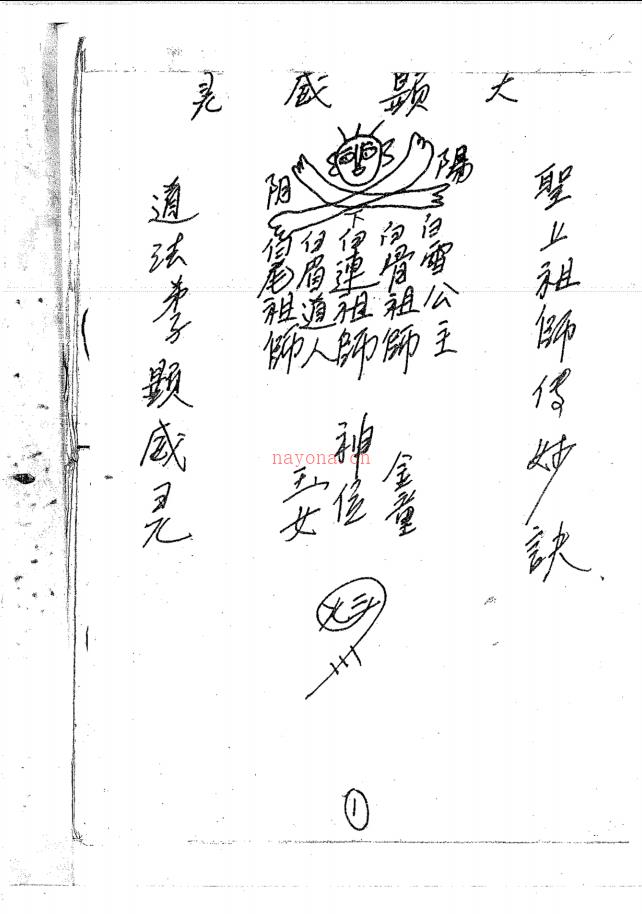 大顯威灵
聖上祖師传妙訣
陽
阴
下
白雪公主
白骨祖師
白連祖師
白眉道人
白尾祖師
金童
神位
玉女
道法弟子顯威灵
nayona.cn
①